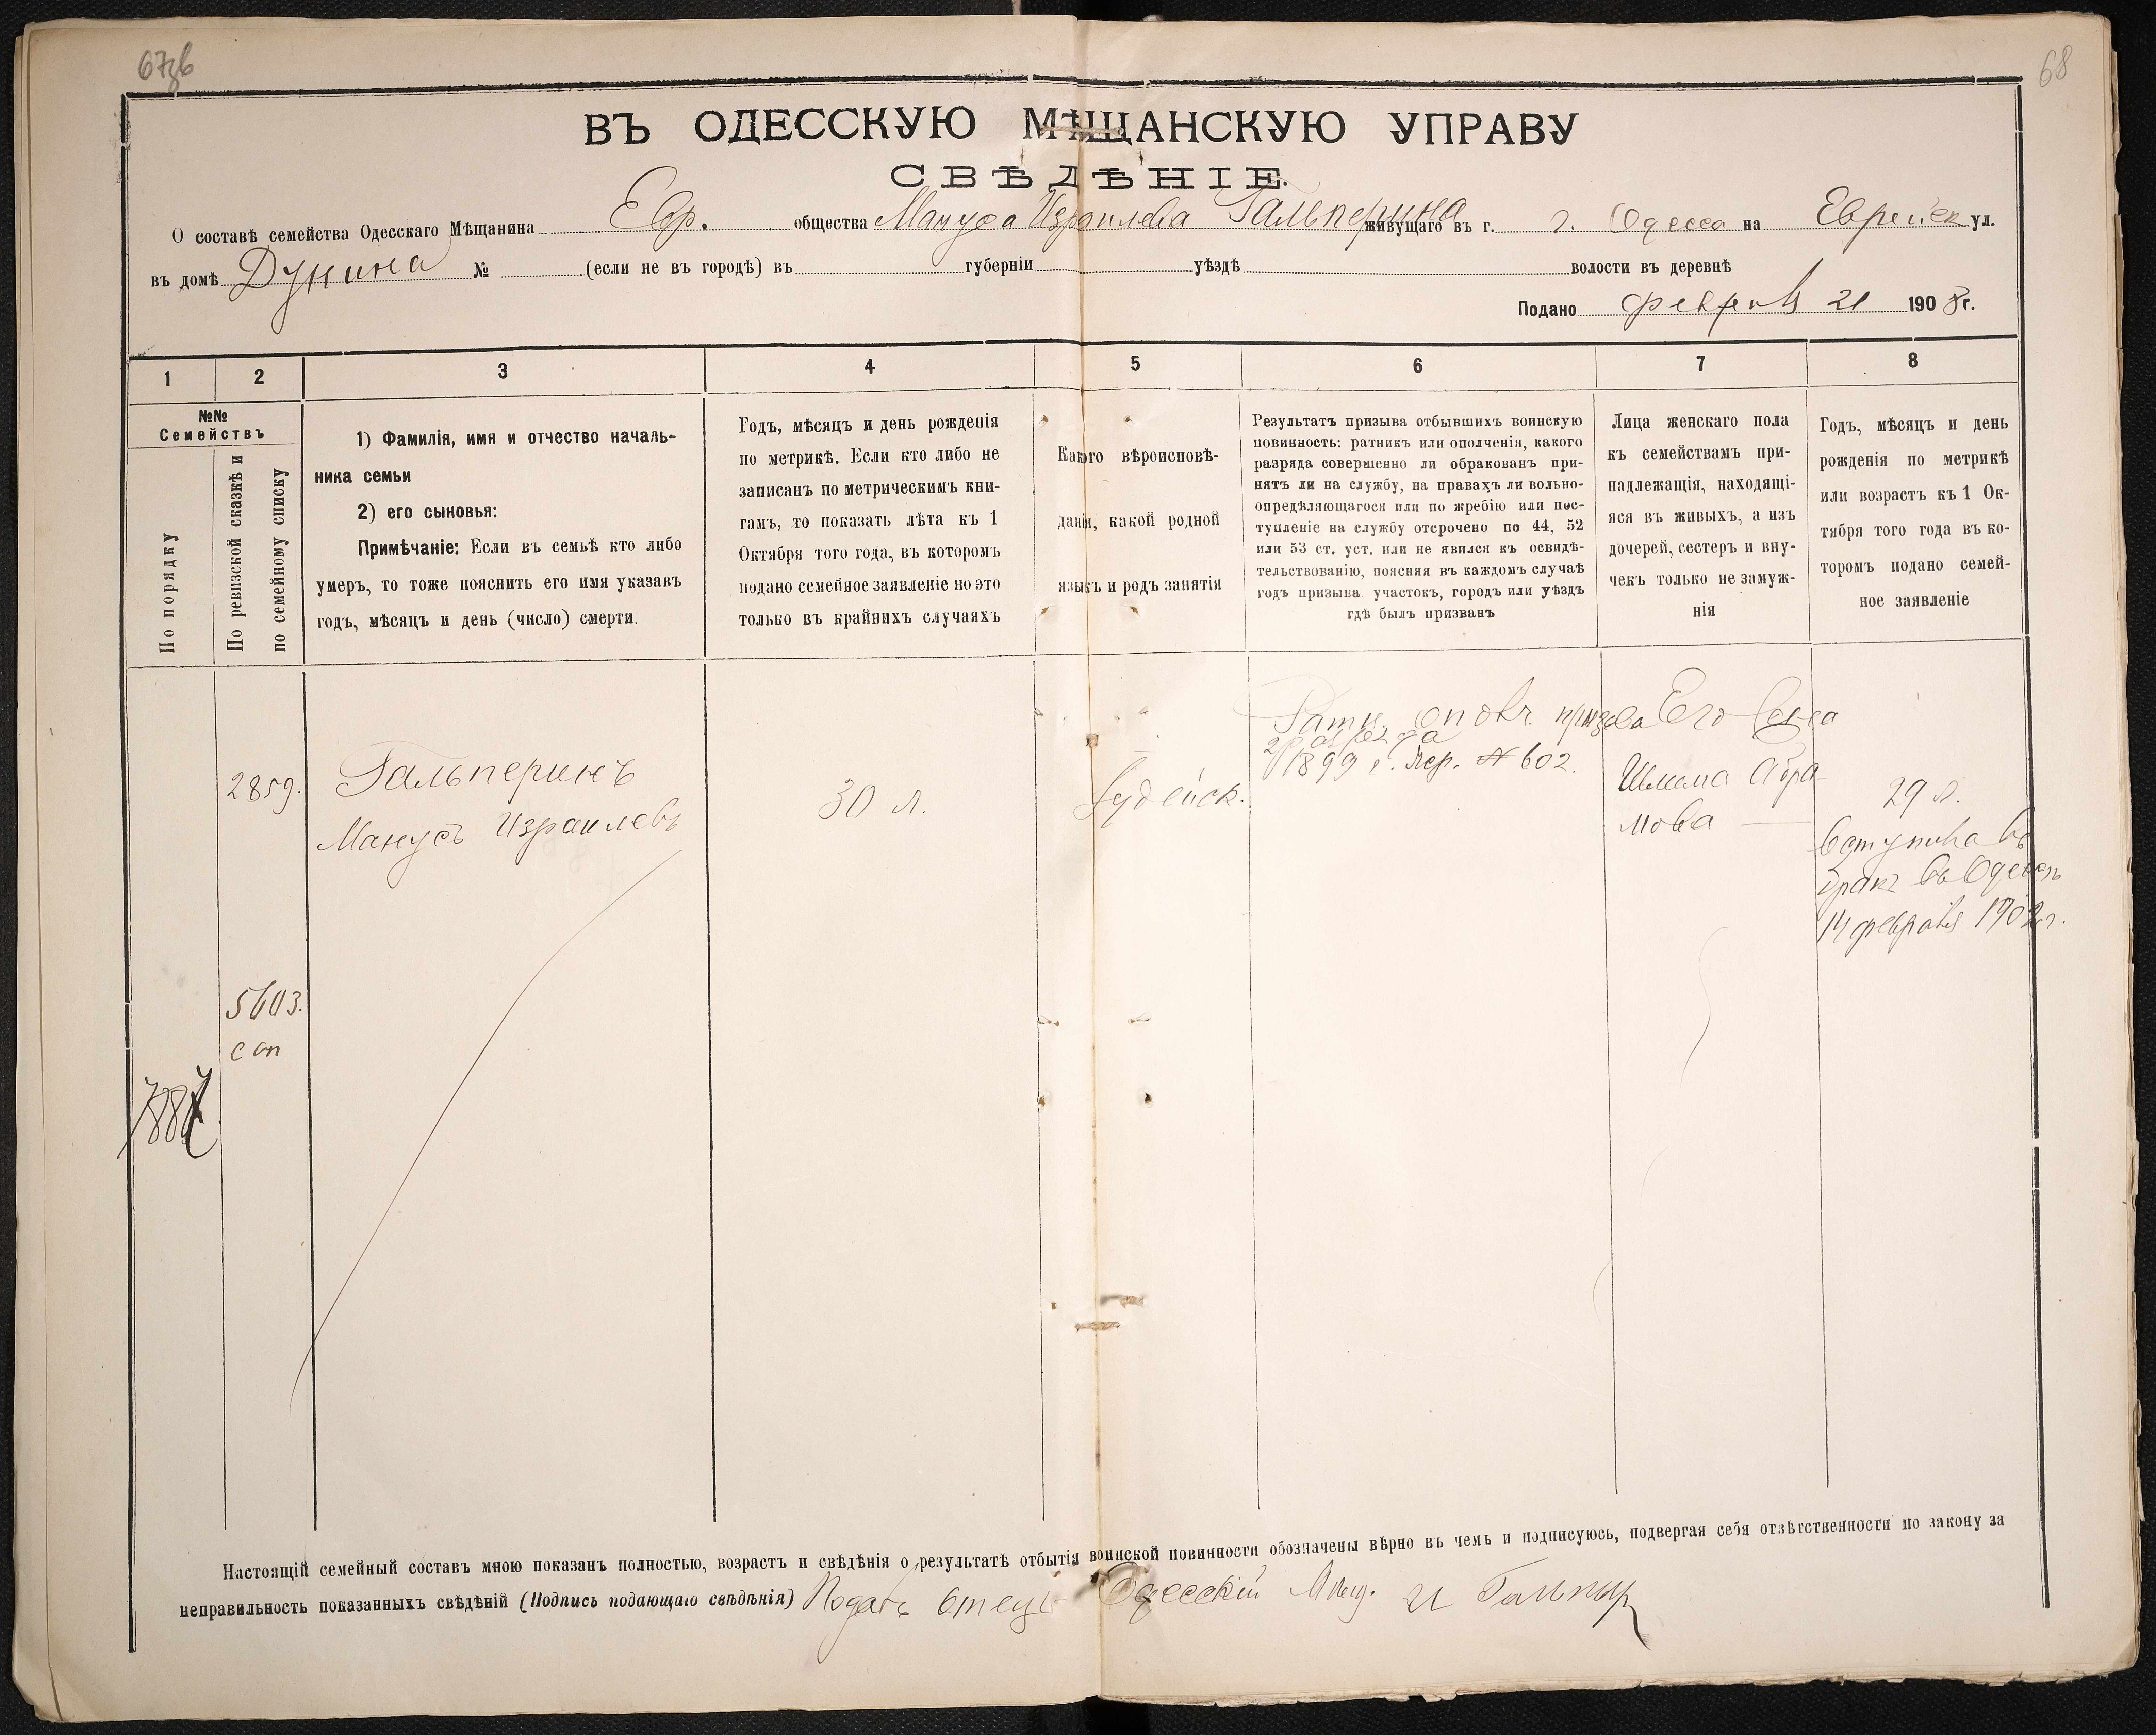 67об
68
ВЪ ОДЕССКУЮ МѢЩАНСКУЮ УПРАВУ
СВѢДѢНІЕ.
О составѣ семейства Одесскаго Мѣщанина Евр. общества Мануса Израилева Гальперина живущаго въ г. г. Одесса на Еврейск ул.
въ домѣ Дунина № (если не въ городѣ) въ губерніи уѣздѣ волости въ деревнѣ
Подано февраля 21 1908 г.
1 2 3 4 5 6 7 8
№№
Семействъ
По порядку
По ревизской сказкѣ и
по семейному списку
1) Фамилія, имя и отчество началь-
ника семьи
2) его сыновья:
Примѣчаніе: Если въ семьѣ кто либо
умеръ, то тоже пояснить его имя указавъ
годъ, мѣсяцъ и день (число) смерти.
Годъ, мѣсяцъ и день рожденія
по метрикѣ. Если кто либо не
записанъ по метрическимъ кни-
гамъ, то показать лѣта къ 1
Октября того года, въ которомъ
подано семейное заявленіе но это
только въ крайнихъ случаяхъ
Какого вѣроисповѣ-
данія, какой родной
языкъ и родъ занятія
Результатъ призыва отбывшихъ воинскую
повинность: ратникъ или ополченія, какого
разряда совершенно ли обракованъ при-
нятъ ли на службу, на правахъ ли вольно-
опредѣляющагося или по жребію или пос-
тупленіе на службу отсрочено по 44, 52
или 53 ст. уст. или не явился къ освидѣ-
тельствованію, поясняя въ каждомъ случаѣ
годъ призыва участокъ, городъ или уѣздъ
гдѣ былъ призванъ
Лица женскаго пола
къ семействамъ при-
надлежащія, находящі-
яся въ живыхъ, а изъ
дочерей, сестеръ и вну-
чекъ только не замуж-
нія
Годъ, мѣсяцъ и день
рожденія по метрикѣ
или возрастъ къ 1 Ок-
тября того года въ ко-
торомъ подано семей-
ное заявленіе
2859.
Гальперинъ
Манусъ Израилевъ
30 л.
Іудейск.
Ратн. ополч. призыва
2 разряда
1899 г. Жер. № 602.
Его жена
Шлима Абра-
мова
29 л.
Вступила въ
бракъ въ Одессѣ
14 февраля 1902 г.
5603.
Настоящій семейный составъ мною показанъ полностью, возрастъ и свѣдѣнія о результатѣ отбытія воинской повинности обозначены вѣрно въ чемъ и подписуюсь, подвергая себя отвѣтственности по закону за
неправильность показанныхъ свѣдѣній (Подпись подающаго свѣдѣнія) Подалъ отецъ Одесскій Мѣщ. И Гальпер